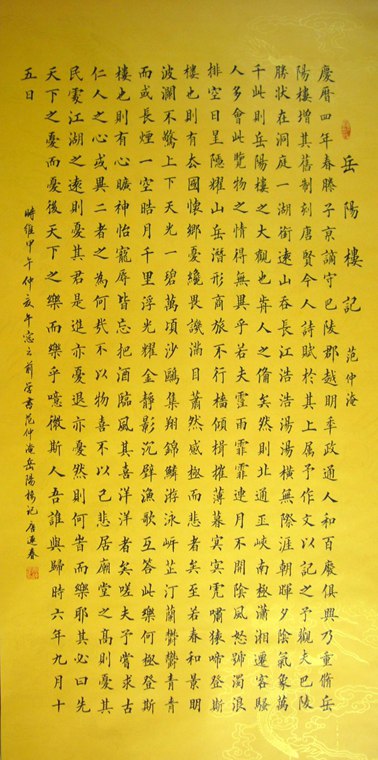 岳陽樓記 范仲淹
慶曆四年春滕子京謫守巴陵郡越明年政通人和百廢俱興乃重脩岳
陽樓增其舊制刻唐賢今人詩賦於其上屬予作文以記之予觀夫巴陵
勝狀在洞庭一湖銜遠山吞長江浩浩湯湯橫無際涯朝暉夕陰氣象萬
千此則岳陽樓之大觀也歬人之備矣然則北通巫峽南極瀟湘遷客騷
人多會此覽物之情得無異乎若夫霪雨霏霏連月不開陰風怒號濁浪
排空日星隱耀山岳潛形商旅不行檣傾楫摧薄暮冥冥虎嘯猿啼登斯
樓也則有去國懷鄉憂讒畏譏滿目蕭然感極而悲者矣至若春和景明
波瀾不驚上下天光一碧萬頃沙鷗集翔錦鱗游泳岸芷汀蘭鬱鬱青青
而或長煙一空皓月千里浮光耀金靜影沉璧漁歌互答此樂何極登斯
樓也則有心曠神怡寵辱皆忘把酒臨風其喜洋洋者矣嗟夫予嘗求古
仁人之心或異二者之為何哉不以物喜不以己悲居廟堂之高則憂其
民處江湖之遠則憂其君是進亦憂退亦憂然則何時而樂耶其必曰先
天下之憂而憂後天下之樂而樂乎噫微斯人吾誰與歸時六年九月十
五日
時維甲午仲 午窗之前學書范仲淹岳陽樓記 迎春